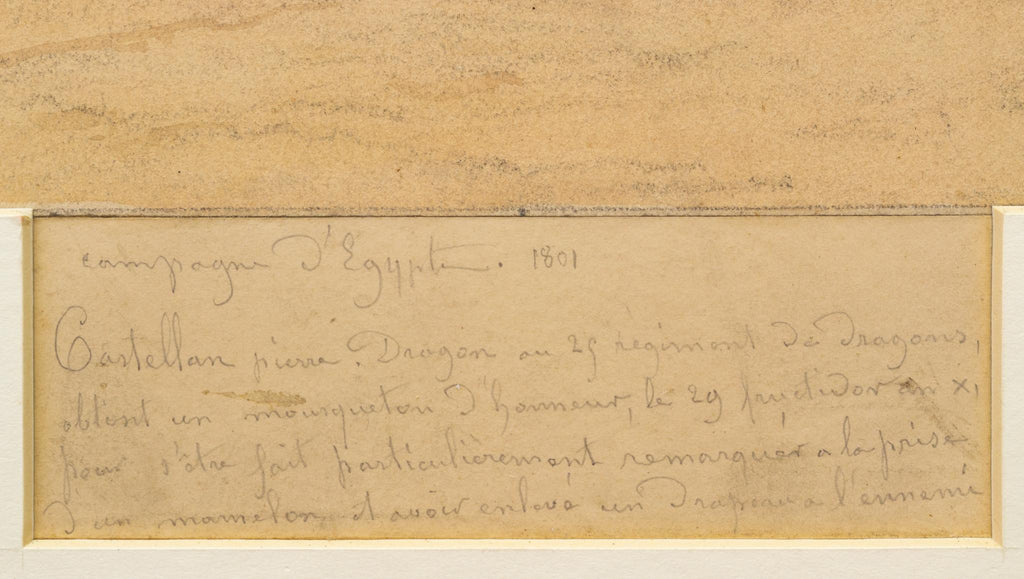 campagne d'Egypte. 1801
Castellan pierre. Dragon au 25 régiment de Dragons,
obtint un mousqueton d'honneur, le 29 fructidor an X,
pour s'être fait particulièrement remarquer a la prise
d'un mamelon et avoir enlevé un Drapeau a l'ennemi